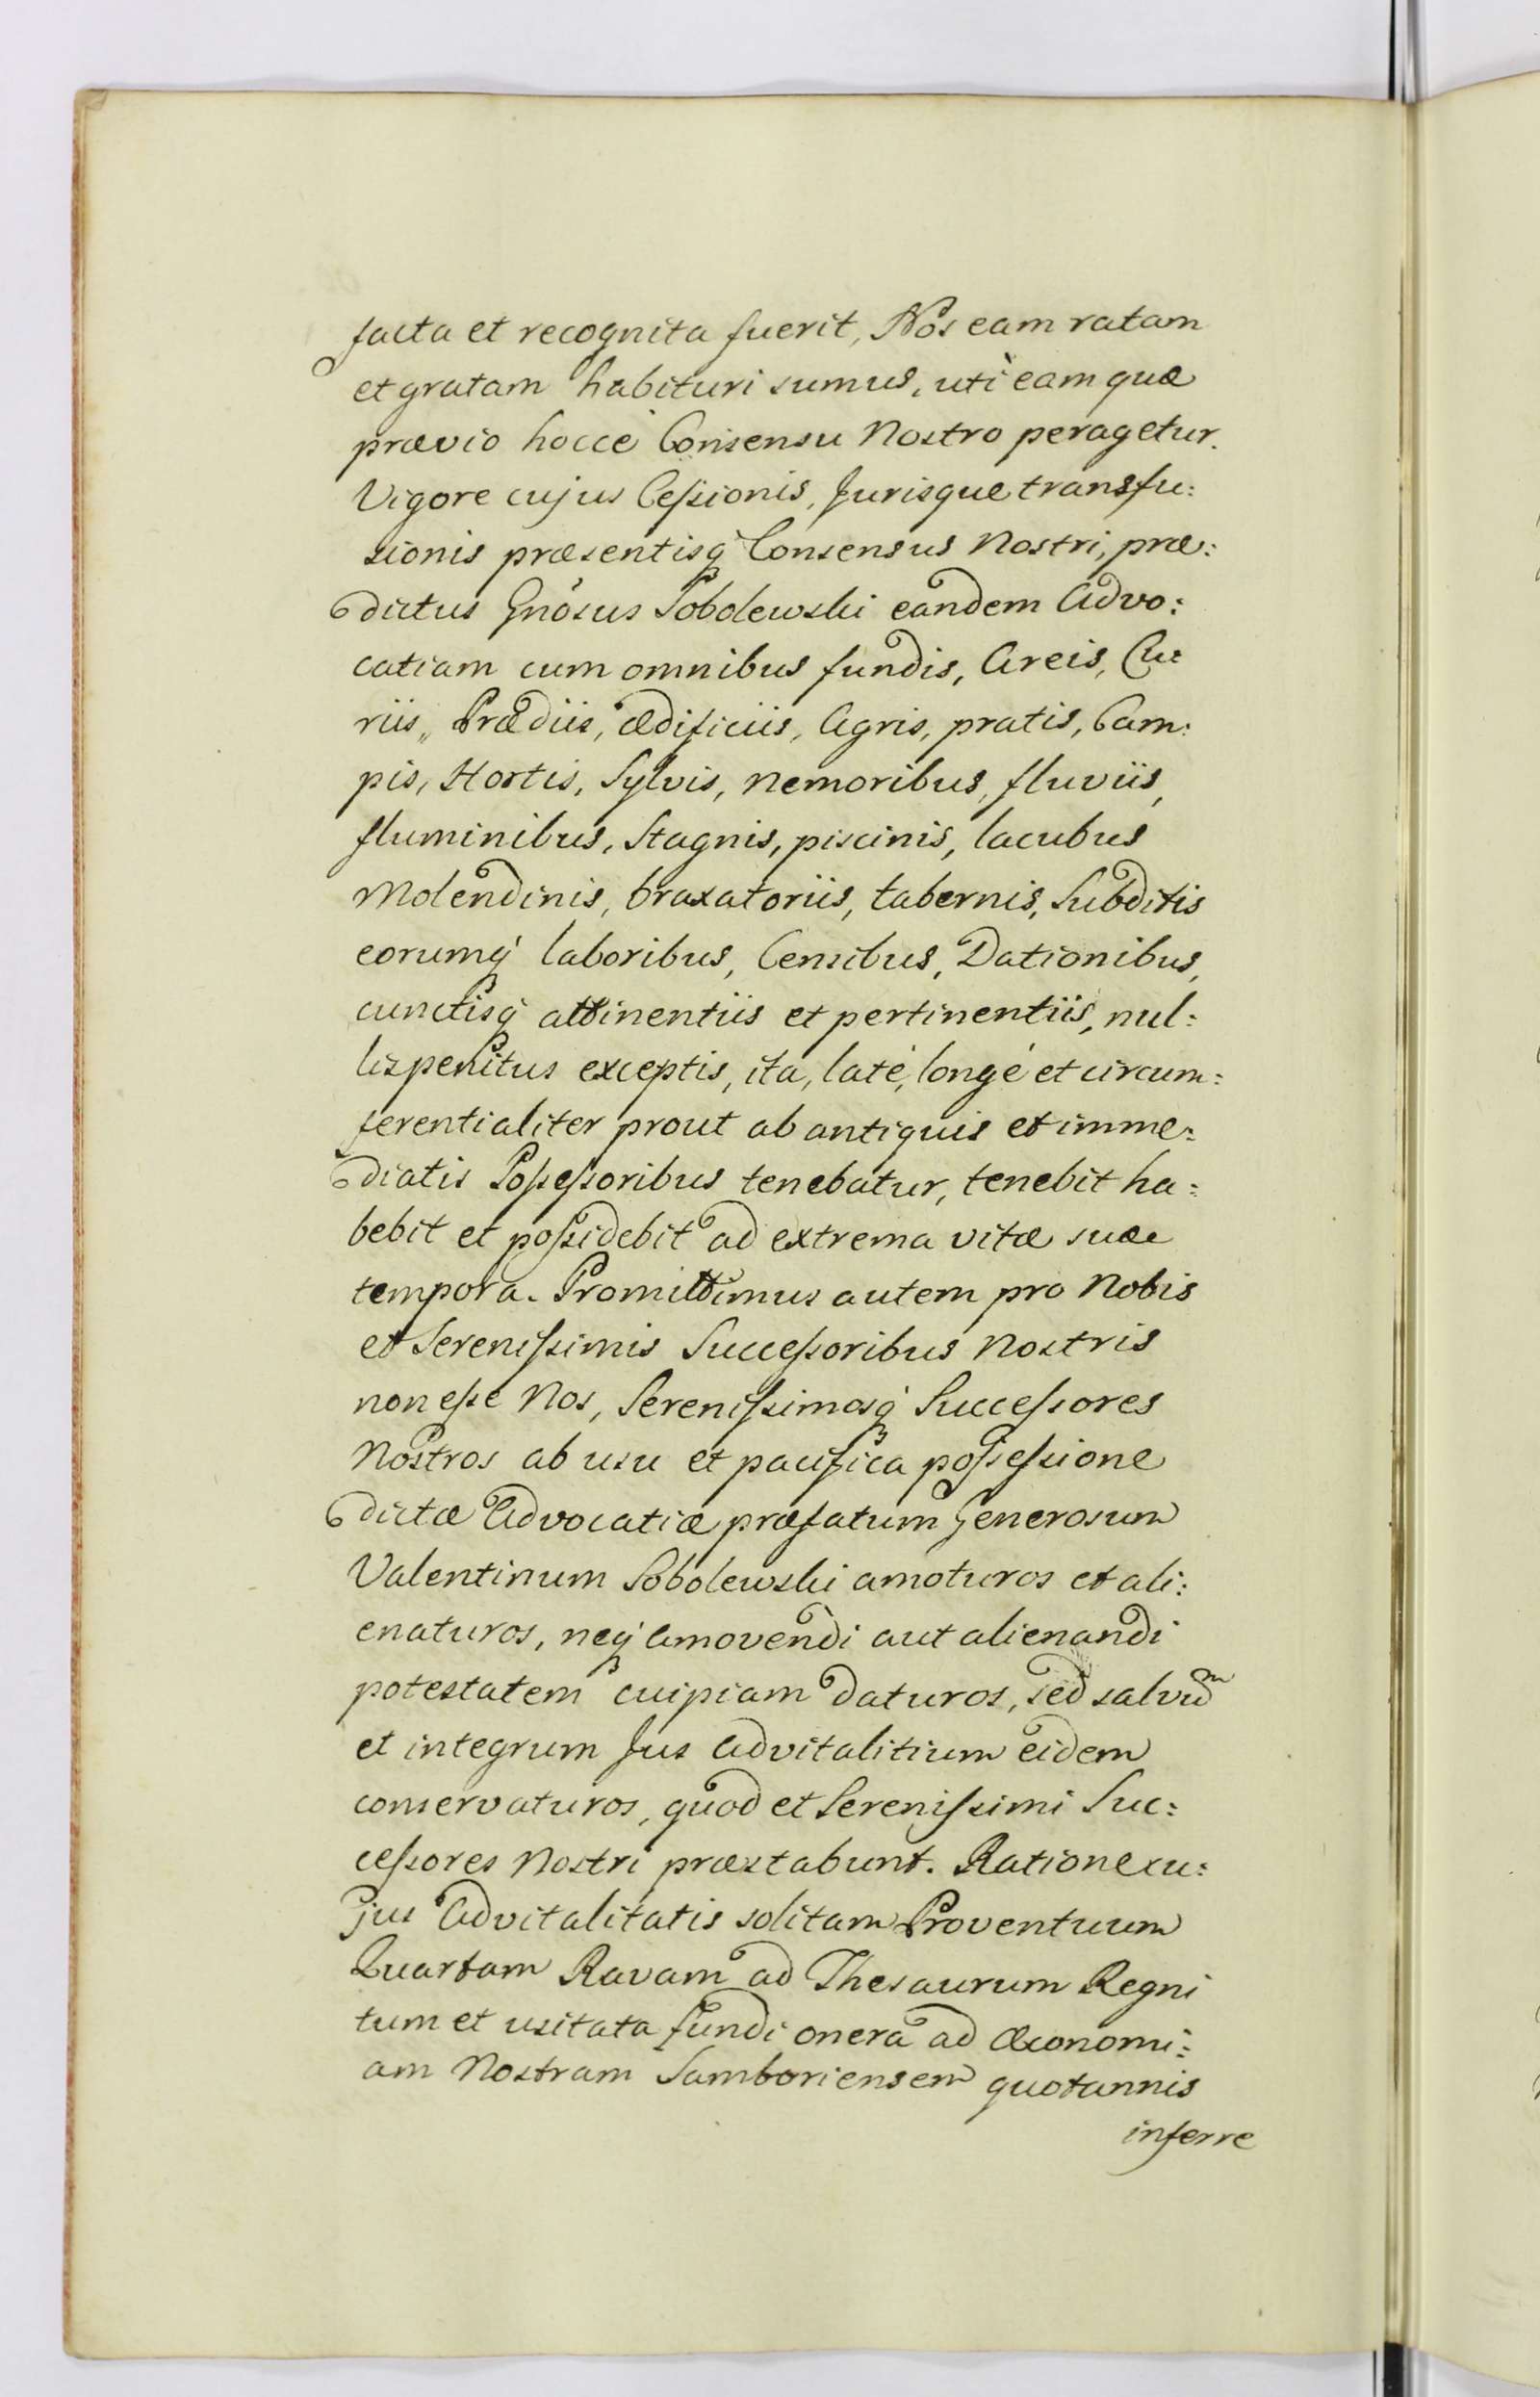 facta et recognita fuerit, Nos eam ratam
et gratam habituri sumus, uti eam quæ
prævio hocce Consensu Nostro peragetur.
Vigore cujus Cessionis, Jurisque transfu:
sionis præsentisq́ Consensus Nostri, præ:
dictus Gnosus Sobolewski eandem Advo:
catiam cum omnibus fundis, Areis, Cu:
riis, Prædiis, ædificiis, Agris, pratis, Cam:
pis, Hortis, Sylvis, Nemoribus, fluviis,
fluminibus, Stagnis, piscinis, lacubus
Molendinis, braxatoriis, tabernis, Subditis
eorumq́ laboribus, Censibus, Dationibus,
cunctisq́ attinentiis et pertinentiis, nul:
lis penitus exceptis, ita, latè, longè et circum:
ferentialiter prout ab antiquis et imme:
diatis Possessoribus tenebatur, tenebit ha:
bebit et possidebit ad extrema vitæ suæ
tempora. Promittimus autem pro Nobis
et Serenissimis Successoribus Nostris
non esse Nos, Serenissimosq́ Successores
Nostros ab usu et pacifica possessione
dictæ Advocatiæ præfatum Generosum
Valentinum Sobolewski amoturos et ali:
enaturos, neq́ amovendi aut alienandi
potestatem cuipiam daturos, sed salvum
et integrum Jus Advitalitium eidem
conservaturos, quod et Serenissimi Suc:
cessores Nostri præstabunt. Ratione cu:
jus Advitalitatis solitam Proventuum
Quartam Ravam ad Thesaurum Regni
tum et usitata fundi onera ad Œconomi:
am Nostram Samboriensem quotannis
inferre